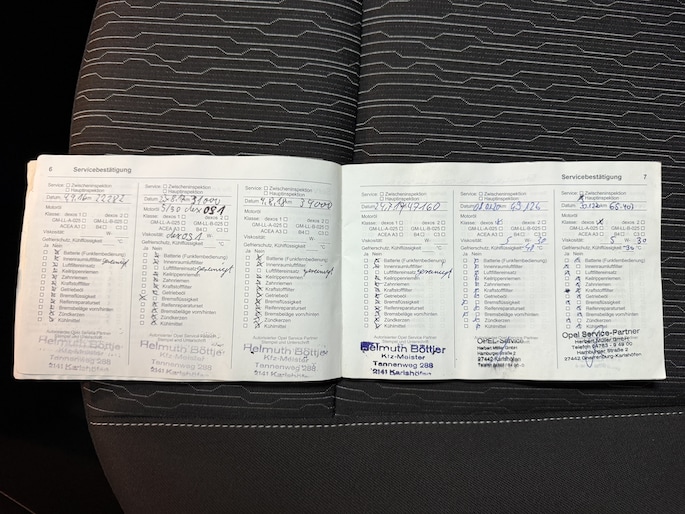 6 Servicebestätigung
Service: Zwischeninspektion
Hauptinspektion
Datum:
Motoröl
Klasse: dexos 1 dexos 2
GM-LL-A-025 GM-LL-B-025
ACEA A3 B4 C3
Viskosität: W-
Gefrierschutz, Kühlflüssigkeit: °C
Ja Nein
Batterie (Funktionsbez.)
Innenraumluftfilter
Luftfiltereinsatz
Keilrippenriemen
Zahnriemen
Kraftstofffilter
Getriebeöl
Bremsflüssigkeit
Reifenreparaturset
Bremsbeläge vorn/hinten
Zündkerzen
Kühlmittel
Autorisierter Opel Service Partner
Stempel und Unterschrift
Helmuth Böttjer
Kfz-Meister
Tennenweg 288
Service: Zwischeninspektion
Hauptinspektion
Datum: 31000
Motoröl 5/30 dex OS1
Klasse: dexos 1 dexos 2
GM-LL-A-025 GM-LL-B-025
ACEA A3 B4 C3
Viskosität: W-
Gefrierschutz, Kühlflüssigkeit: °C
Ja Nein
Batterie (Funktionsbez.)
Innenraumluftfilter
Luftfiltereinsatz
Keilrippenriemen
Zahnriemen
Kraftstofffilter
Getriebeöl
Bremsflüssigkeit
Reifenreparaturset
Bremsbeläge vorn/hinten
Zündkerzen
Kühlmittel
Helmuth Böttjer
Kfz-Meister
Tennenweg 288
2141 Karlshöfen
Service: Zwischeninspektion
Hauptinspektion
Datum: 34000
Motoröl
Klasse: dexos 1 dexos 2
GM-LL-A-025 GM-LL-B-025
ACEA A3 B4 C3
Viskosität: W-
Gefrierschutz, Kühlflüssigkeit: °C
Ja Nein
Batterie (Funktionsbez.)
Innenraumluftfilter
Luftfiltereinsatz
Keilrippenriemen
Zahnriemen
Kraftstofffilter
Getriebeöl
Bremsflüssigkeit
Reifenreparaturset
Bremsbeläge vorn/hinten
Zündkerzen
Kühlmittel
Helmuth Böttjer
Kfz-Meister
Tennenweg 288
2141 Karlshöfen
Servicebestätigung 7
Service: Zwischeninspektion
Hauptinspektion
Datum: 47160
Motoröl
Klasse: dexos 1 dexos 2
GM-LL-A-025 GM-LL-B-025
ACEA A3 B4 C3
Viskosität: W-
Gefrierschutz, Kühlflüssigkeit: °C
Ja Nein
Batterie (Funktionsbez.)
Innenraumluftfilter
Luftfiltereinsatz
Keilrippenriemen
Zahnriemen
Kraftstofffilter
Getriebeöl
Bremsflüssigkeit
Reifenreparaturset
Bremsbeläge vorn/hinten
Zündkerzen
Kühlmittel
Autorisierter Opel Service Partner
Stempel und Unterschrift
Helmuth Böttjer
Kfz-Meister
Tennenweg 288
2141 Karlshöfen
Service: Zwischeninspektion
Hauptinspektion
Datum: 63.126
Motoröl
Klasse: dexos 1 dexos 2
GM-LL-A-025 GM-LL-B-025
ACEA A3 B4 C3
Viskosität: 5 W- 30
Gefrierschutz, Kühlflüssigkeit: °C
Ja Nein
Batterie (Funktionsbez.)
Innenraumluftfilter
Luftfiltereinsatz
Keilrippenriemen
Zahnriemen
Kraftstofffilter
Getriebeöl
Bremsflüssigkeit
Reifenreparaturset
Bremsbeläge vorn/hinten
Zündkerzen
Kühlmittel
OPEL-Service
Herbert Müller GmbH
Hamburger Straße 2
27442 Karlshöfen
Service: Zwischeninspektion
Hauptinspektion
Datum:
Motoröl
Klasse: dexos 1 dexos 2
GM-LL-A-025 GM-LL-B-025
ACEA A3 B4 C3
Viskosität: 5 W- 30
Gefrierschutz, Kühlflüssigkeit: °C
Ja Nein
Batterie (Funktionsbez.)
Innenraumluftfilter
Luftfiltereinsatz
Keilrippenriemen
Zahnriemen
Kraftstofffilter
Getriebeöl
Bremsflüssigkeit
Reifenreparaturset
Bremsbeläge vorn/hinten
Zündkerzen
Kühlmittel
Opel Service-Partner
Herbert Müller GmbH
Telefon 04763 - 9 49 00
Hamburger Straße 2
27442 Gnarrenburg-Karlshöfen